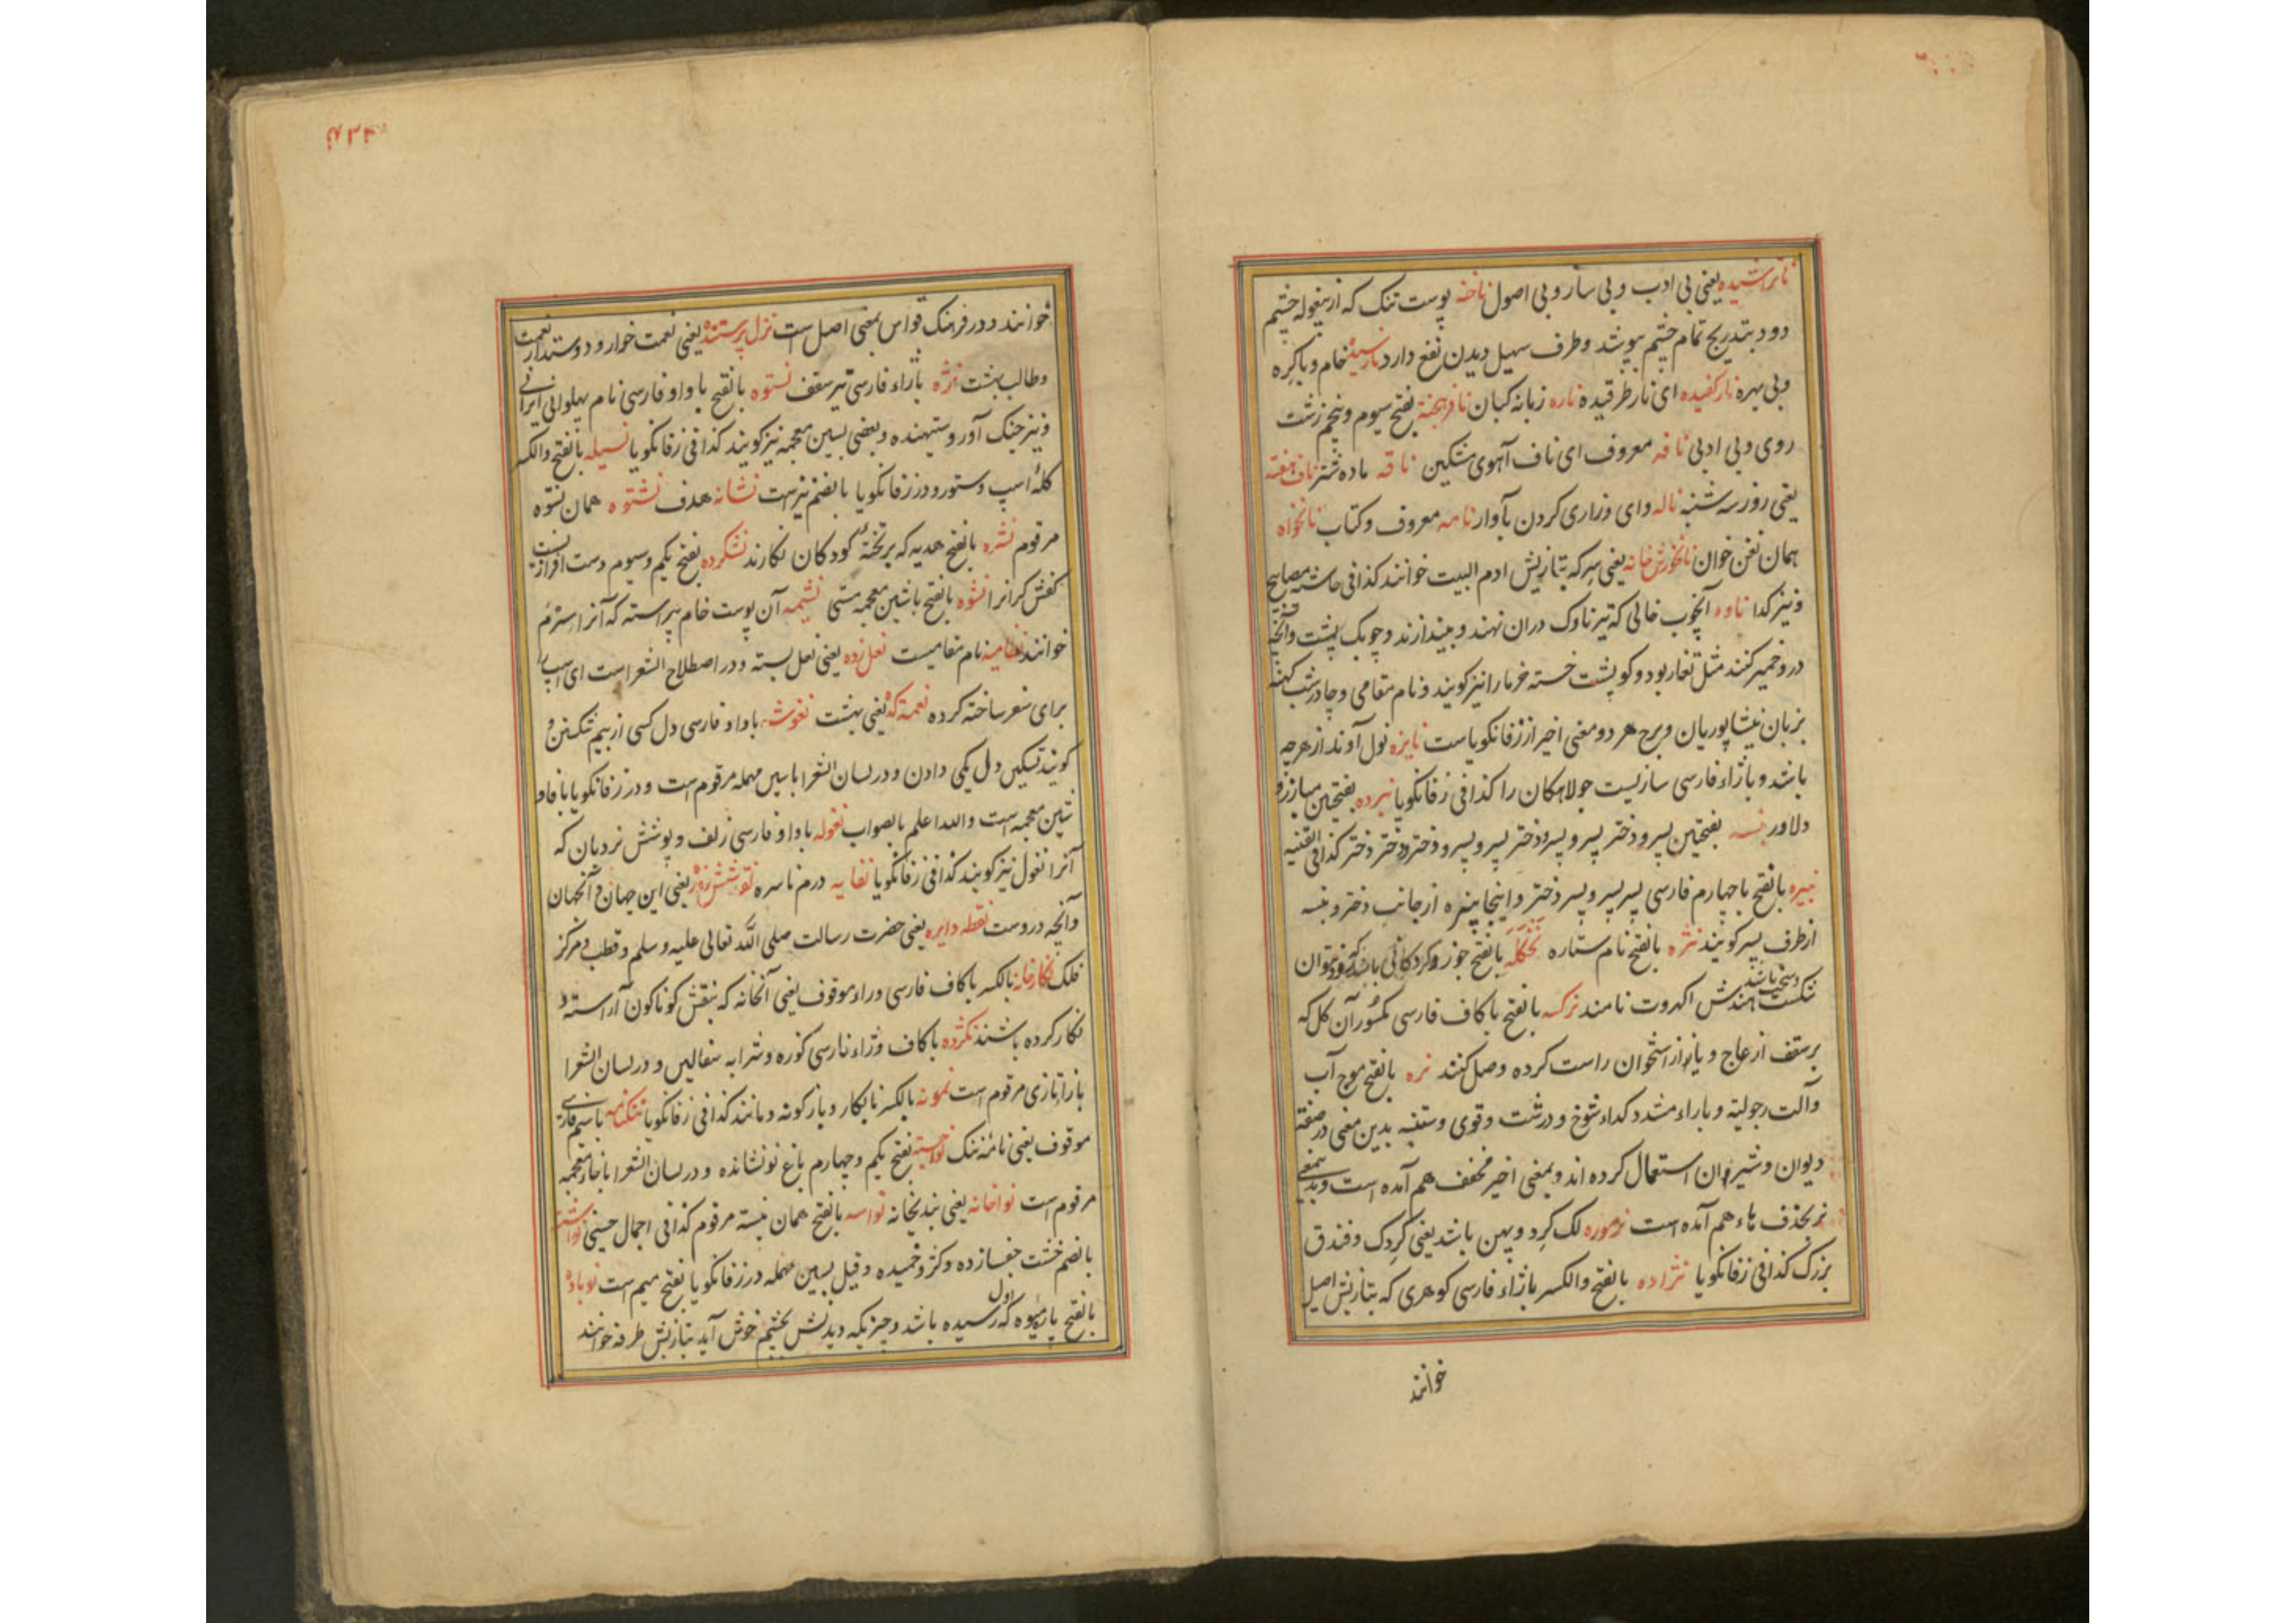 ناتراشیده یعنی بی ادب و بی ساز و بی اصول ناخنه پوست تنک که از بیغوله چشم
دود بتدریج تمام چشم بپوشد و طرف سهیل دیدن نفع دارد نارسیده خام و باکره
و بی بهره نارکفیده ای نار طرقیده ناره زبانه کپان نافرهخته بفتح سیوم و پنجم زشت
روی و بی ادبی نافه معروف ای ناف آهوی مشکین ناقه ماده شتر ناف هفته
یعنی روز سه شنبه ناله وای و زاری کردن بآواز نامه معروف و کتاب نانخواه
همان نغن خوان نانخورش خانه یعنی سرکه بتازیش ادم البیت خوانند کذا فی حاشیه مصابیح
و نیز کدا ناوه آنچوب خالی که تیر ناوک دران نهند و بیندازند و چوبک پشت و آنچه
درو خمیر کنند مثل تغار بود و کو پشت خسته خرما را نیز کویند و نام مقامی و چادر شب کهنه
بزبان نیشاپوریان و برج هر دو معنی اخیر از زفانکویاست نایزه نول آوند از هرچه
باشد و با زاء فارسی سازیست جولاهکان را کذا فی زفانکویا نبرده بفتحین مبارز و
دلاور نبسه بفتحتین پسر و دختر پسر و پسر و دختر پسر و پسر و دختر و دختر دختر کذا فی القنیه
نبیره بالفتح با چهارم فارسی پسر پسر و پسر دختر و اینجا نبیره از جانب دختر و نبسه
از طرف پسر کویند نثره بالفتح نام ستاره نخکله بالفتح جوز و کردکانی باشد که زود نتوان
شکست و سخت باشد هندش اکهروت نامند نرکسه بالفتح با کاف فارسی مکسور آن کل که
بر سقف از عاج و یا از استخوان راست کرده وصل کنند نره بالفتح موج آب
و آلت رجولیته و با راء مشدد کداء شوخ و درشت و قوی و ستنبه بدین معنی در صفت
دیوان و شیران استعمال کرده اند و بمعنی اخیر مخفف هم آمده است و بدینمعنی
نر بحذف هاء هم آمده است نرموره لک کرد و پهن باشد یعنی کردک و فندق
بزرک کذا فی زفانکویا نژاده بالفتح والکسر با زاء فارسی کوهری که بتازیش اصیل
خوانند
خوانند و در فرهنک قواس بمعنی اصل است نزل پرستنده یعنی نعمت خوار و دوستدار نعمت
و طالب بهشت نژه بازاء فارسی تیر سقف نستوه بالفتح با واو فارسی نام پهلوانی ایرانی
و نیز جنک آور و ستیهنده و بعضی بسین معجمه نیز کویند کذا فی زفانکویا نسیله بالفتح والکسر
کلهٔ اسپ و ستور و در زفانکویا بالضم نیز است نشانه هدف نشتوه همان نستوه
مرقوم نشره بالفتح هدیه که بر تختهٔ کودکان نکارند نشکرده بفتح یکم و سیوم دست افزاریست
کفش کرانرا نشوه بالفتح با شین معجمه مستی نشیمه آن پوست خام پیراسته که آنرا سترم
خوانند نظامیه نام مقامیست نعل زده یعنی نعل بسته و در اصطلاح الشعر است ای اسپ را
برای سفر ساخته کرده نعمتکده یعنی بهشت نغوشه با واو فارسی دل کسی از بیم تسکین و
کویند تسکین دل یکی دادن و در لسان الشعرا با سین مهمله مرقوم است و در زفانکویا با فا و
شین معجمه است والله اعلم بالصواب نغوله با واو فارسی زلف و پوشش نردبان که
آنرا نغول نیز کویند کذا فی زفانکویا نفایه درم ناسره نقش شش روزه یعنی این جهان و آنجهان
و آنچه دروست نقطه دایره یعنی حضرت رسالت صلی الله تعالی علیه و سلم و قطب و مرکز
فلک نکارخانه بالکسر با کاف فارسی و راء موقوف یعنی آنخانه که بنقش کوناکون آراسته و
نکار کرده باشند نکژده با کاف و زاء فارسی کوزه و شرابه سفالین و در لسان الشعرا
با زا تازی مرقوم است نمونه بالکسر نابکار و بازکونه و مانند کذا فی زفانکویا ننکنامه با سیم فارسی
موقوف یعنی نامهٔ ننک نواجسته بفتح یکم و چهارم باغ نو نشانده و در لسان الشعرا با خاء معجمه
مرقوم است نواخانه یعنی بندیخانه نواسه بالفتح همان نبسه مرقوم کذا فی اجمال حسینی نواشته
بالضم خشت جفسازده و کژ و خمیده و قیل بسین مهمله در زفانکویا بفتح میم است نوباوه
بالفتح بار میوه که اول رسیده باشد و چیزیکه دیدنش بچشم خوش آید بتازیش طرفه خوانند